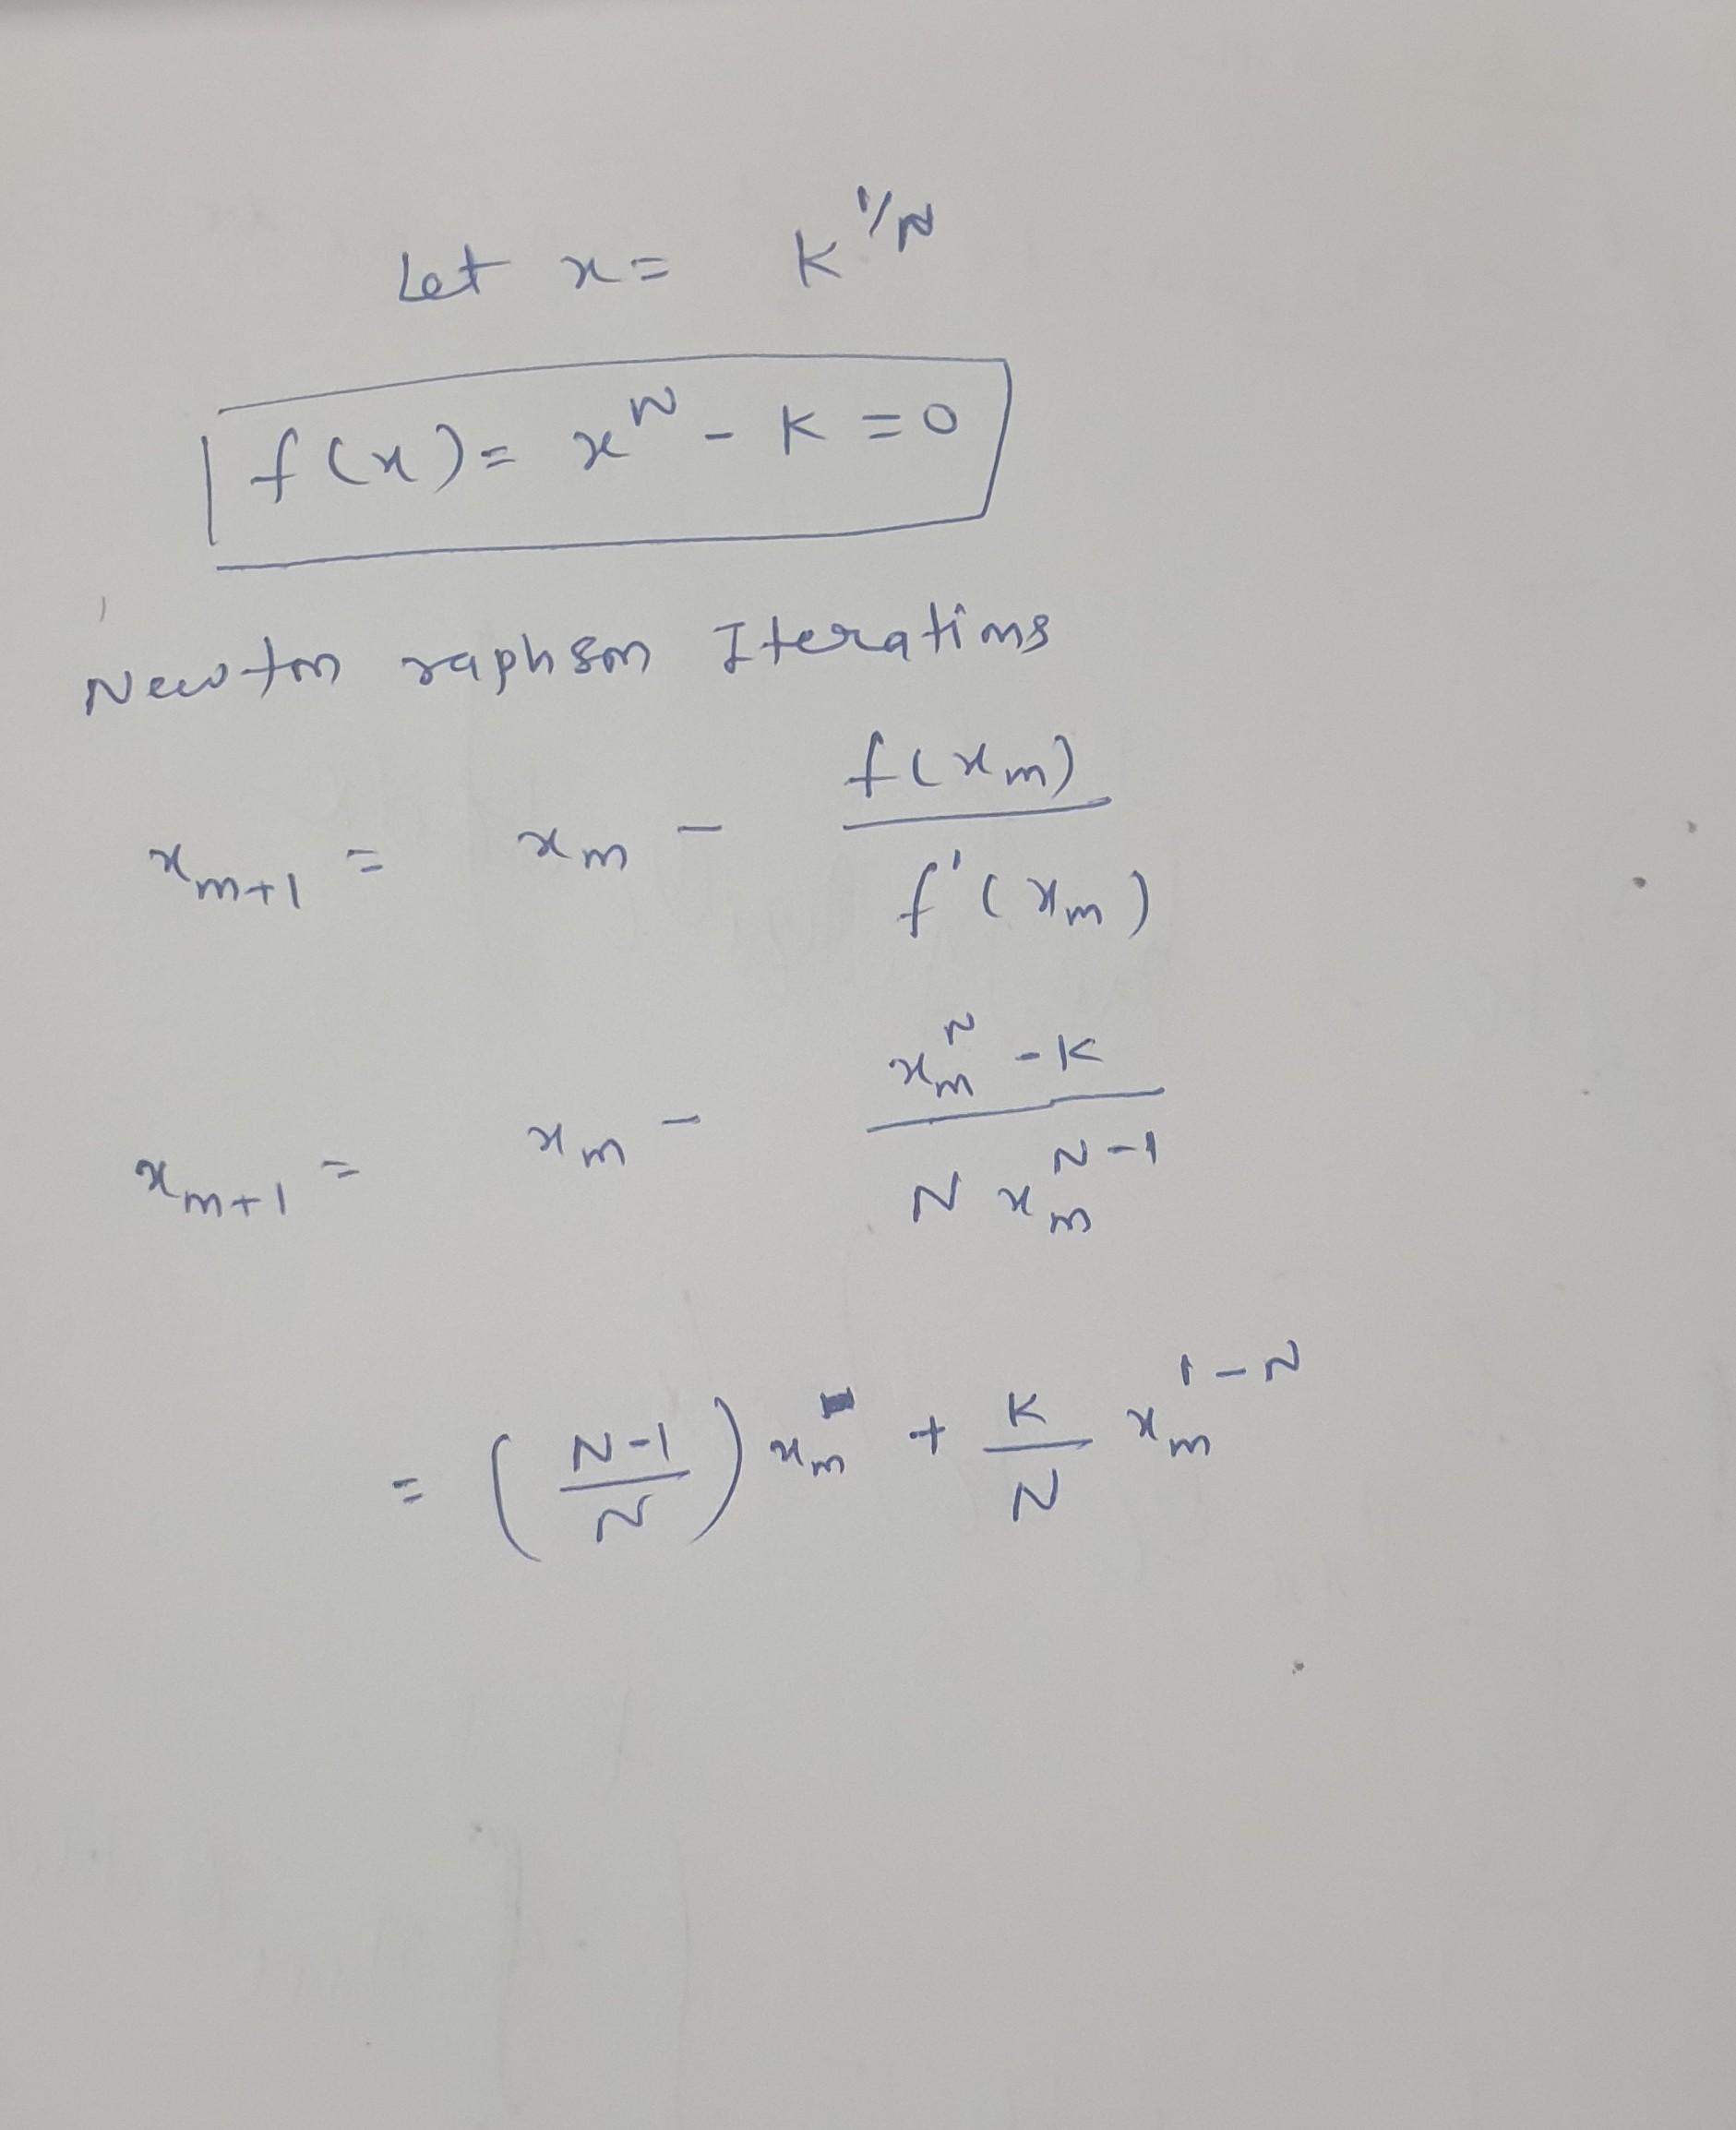 Let x = K^{1/N}
f(x) = x^N - K = 0
Newton raphson Iterations
x_{m+1} = x_m - \frac{f(x_m)}{f'(x_m)}
x_{m+1} = x_m - \frac{x_m^N - K}{N x_m^{N-1}}
= \left( \frac{N-1}{N} \right) x_m + \frac{K}{N} x_m^{1-N}